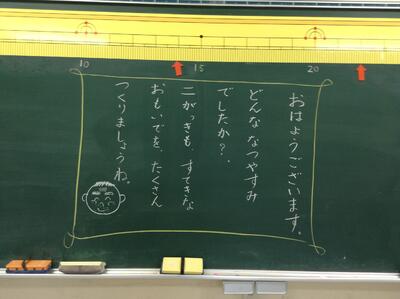 10
15
20
おはようございます。
どんななつやすみ
でしたか？.
二がっきも、すてきな
おもいでを、たくさん
つくりましょうね。